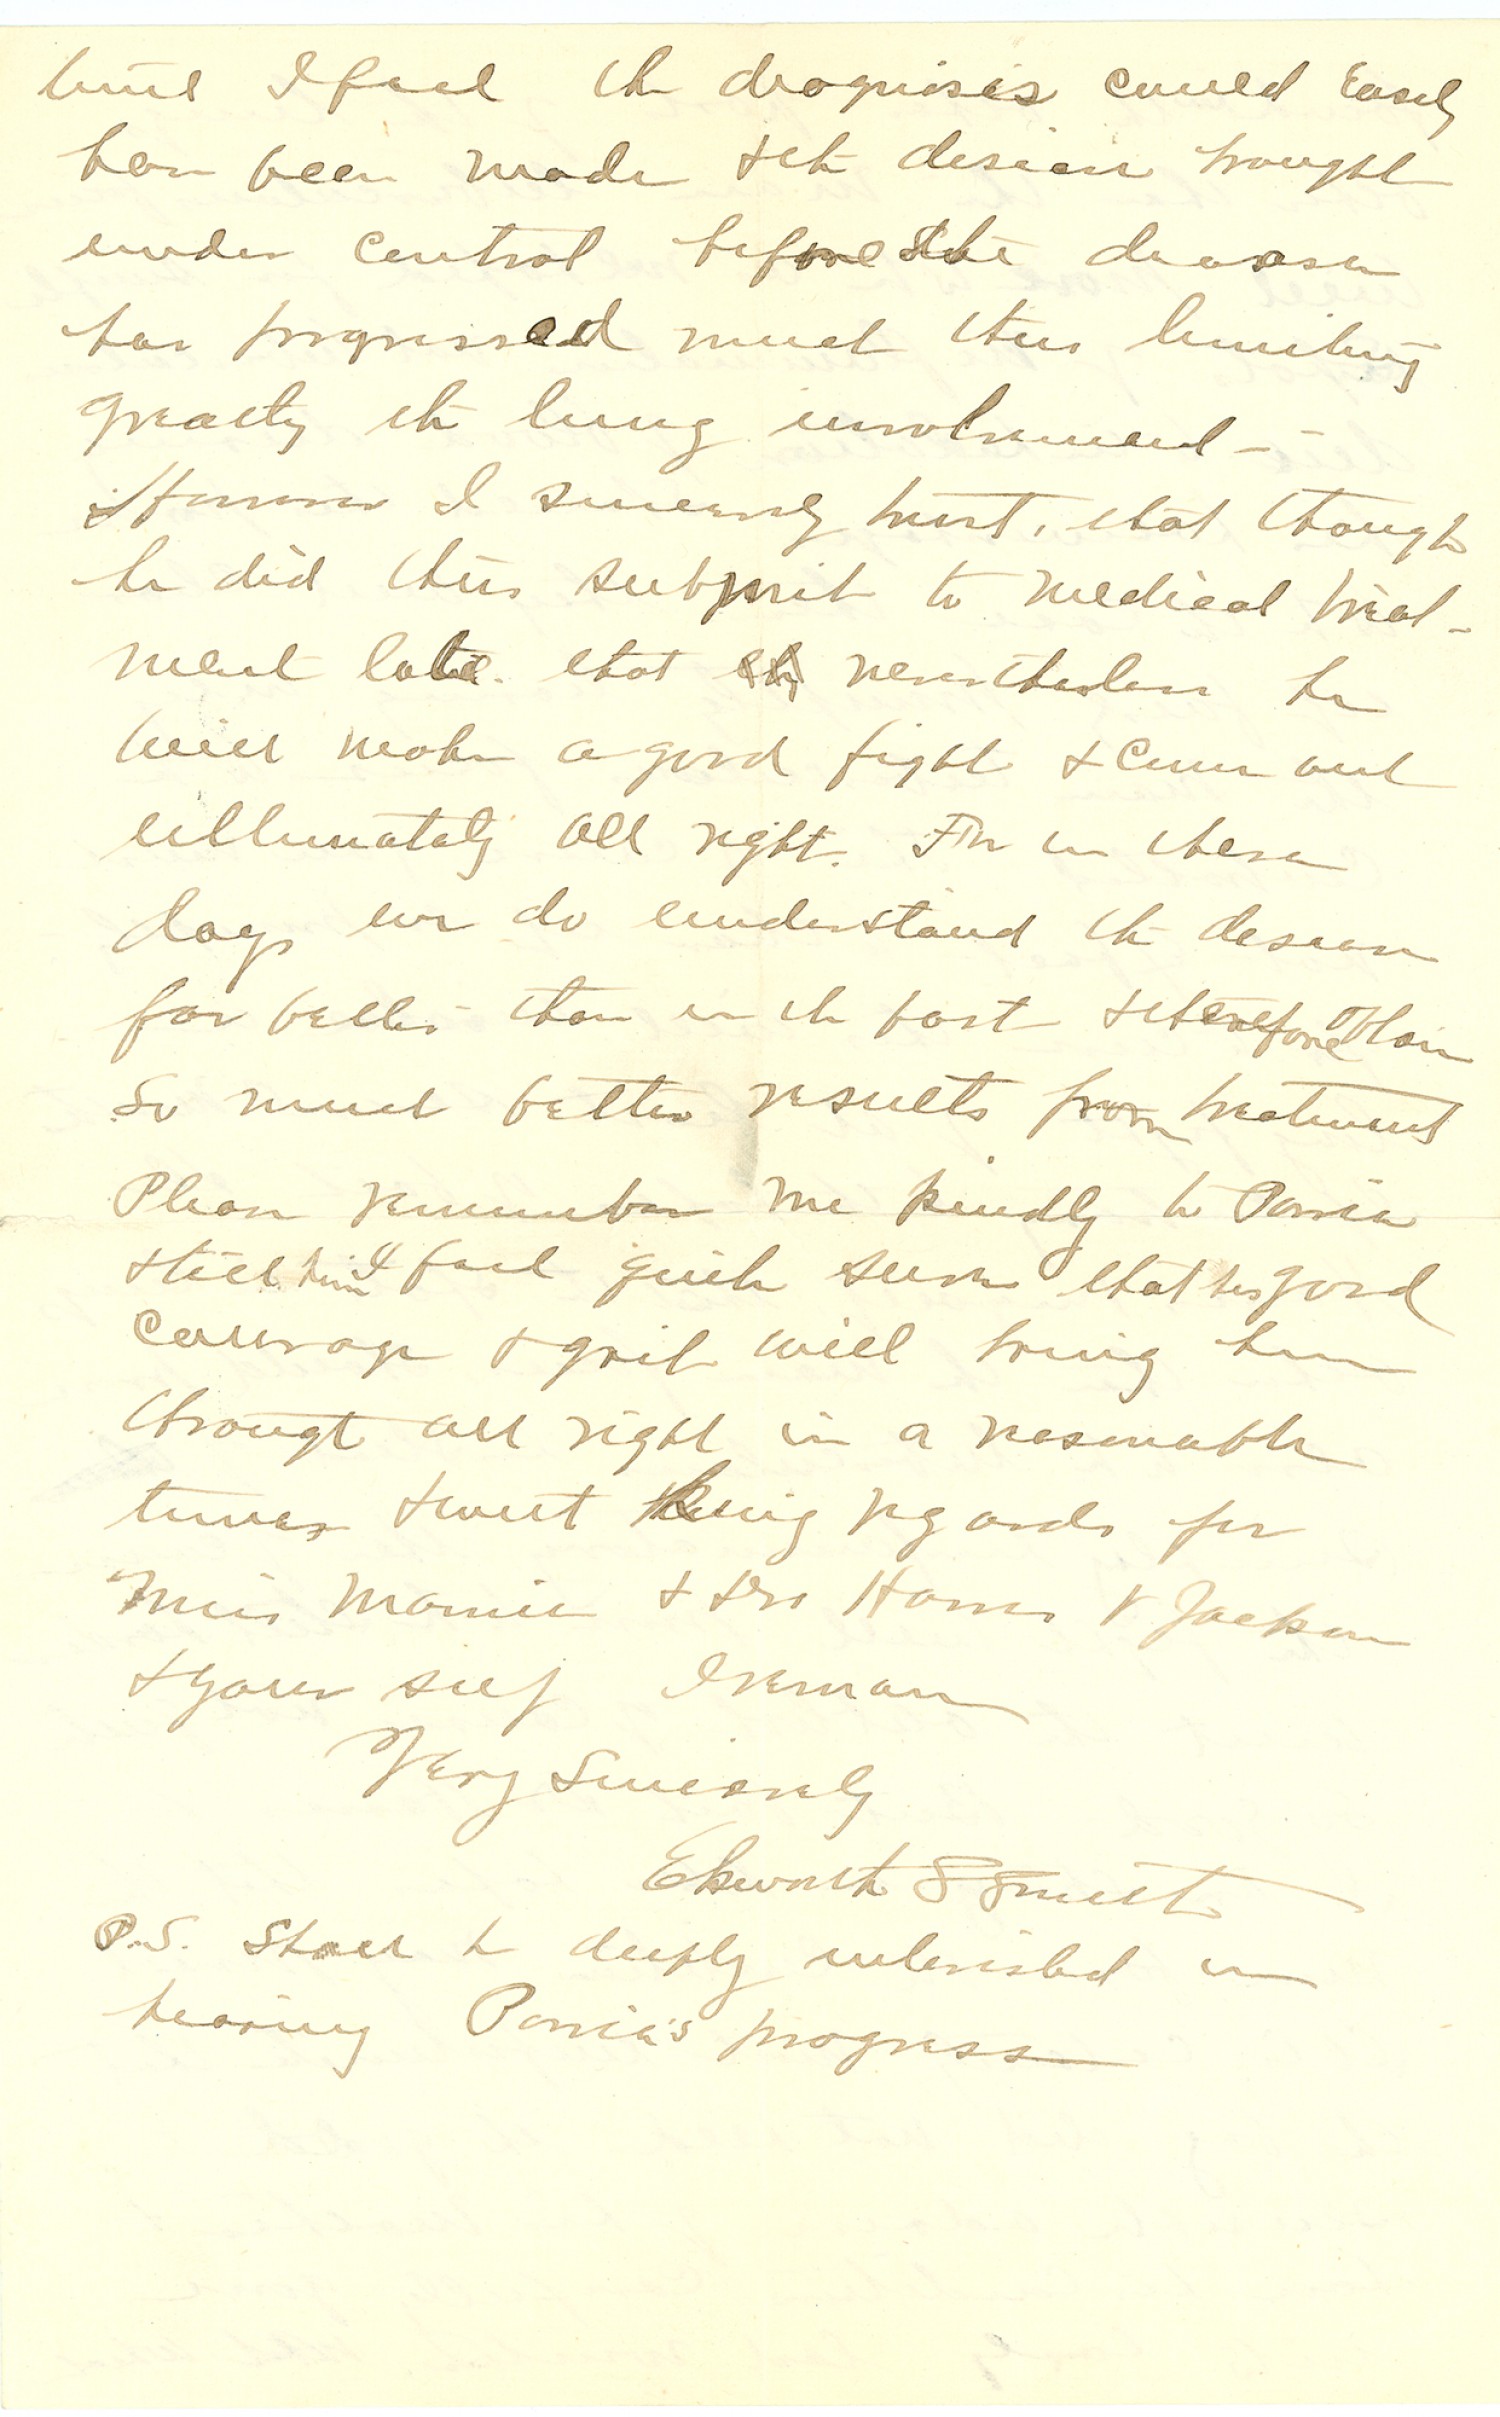 time I feel the diagnosis could easily
have been made & the disease brought
under control before the disease
has progressed much thus limiting
greatly the lung involvement -
However I sincerely trust, that though
he did thus submit to medical treat-
ment late. that nevertheless he
will make a good fight & come out
ultimately all right. For in these
days we do understand the disease
far better than in the past & therefore obtain
so much better results from treatment
Please remember me kindly to Parrie
& tell him I feel quite sure that his good
courage & grit will bring him
through all right in a reasonable
time & with regards for
Miss Mamie & Drs Harris & Jackson
& yourself I remain
Very Sincerely
Elsworth S Smith
P.S. Shall be deeply interested in
hearing Parrie's progress